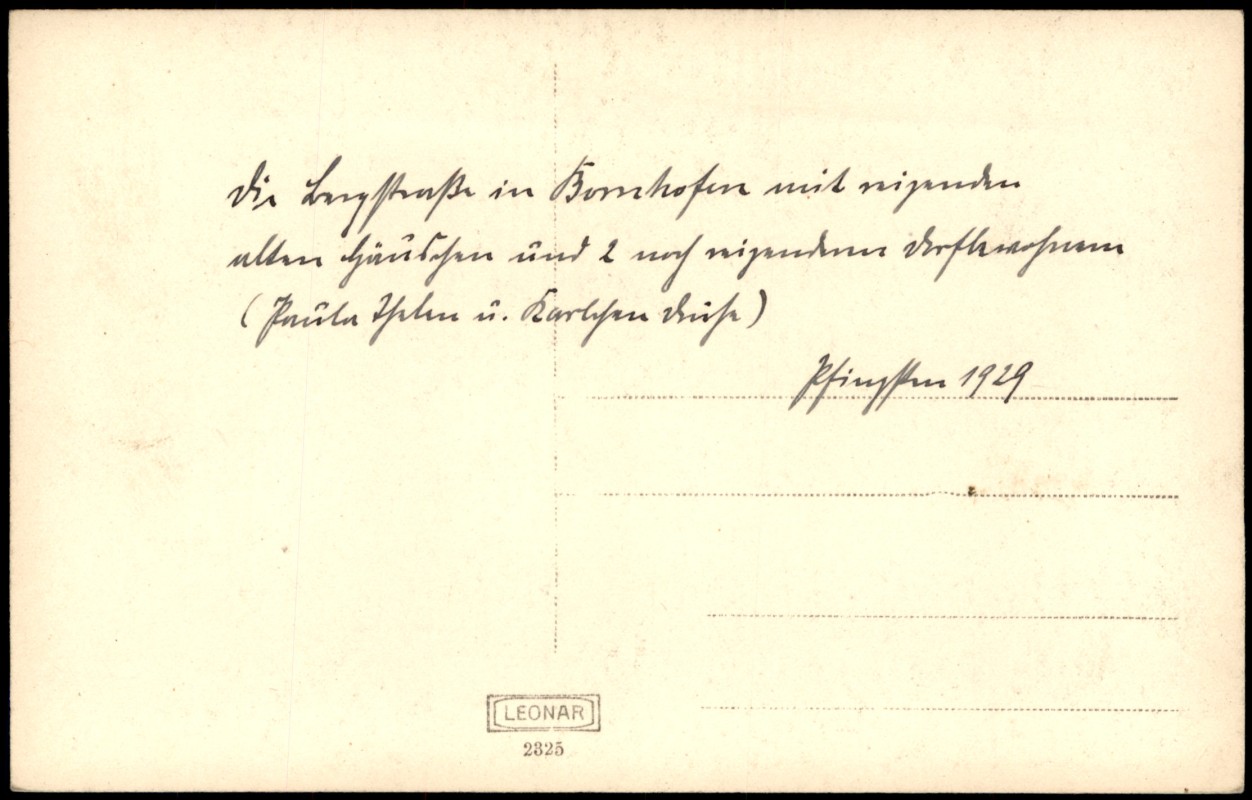 Die Bergstraße in Bornhofen mit reizenden
alten Häuschen und 2 noch reizenderen Dorfbewohnern
(Paula Thelen u. Karlchen
Pfingsten 1929
LEONAR
2325